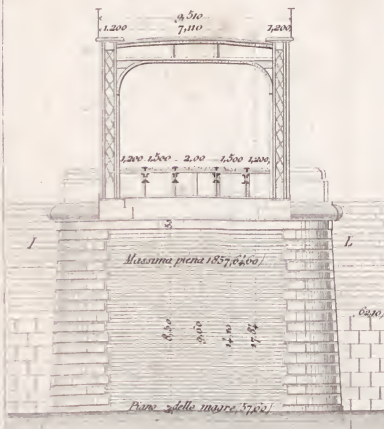 9,510
1.200 7,110 1,200
1,200 1,500 2,00 1,500 1,200
I L
Massima piena 1857,64,60)
62,10)
8,50 9,60 14,10 17,84
Piano delle magre, 57,60)